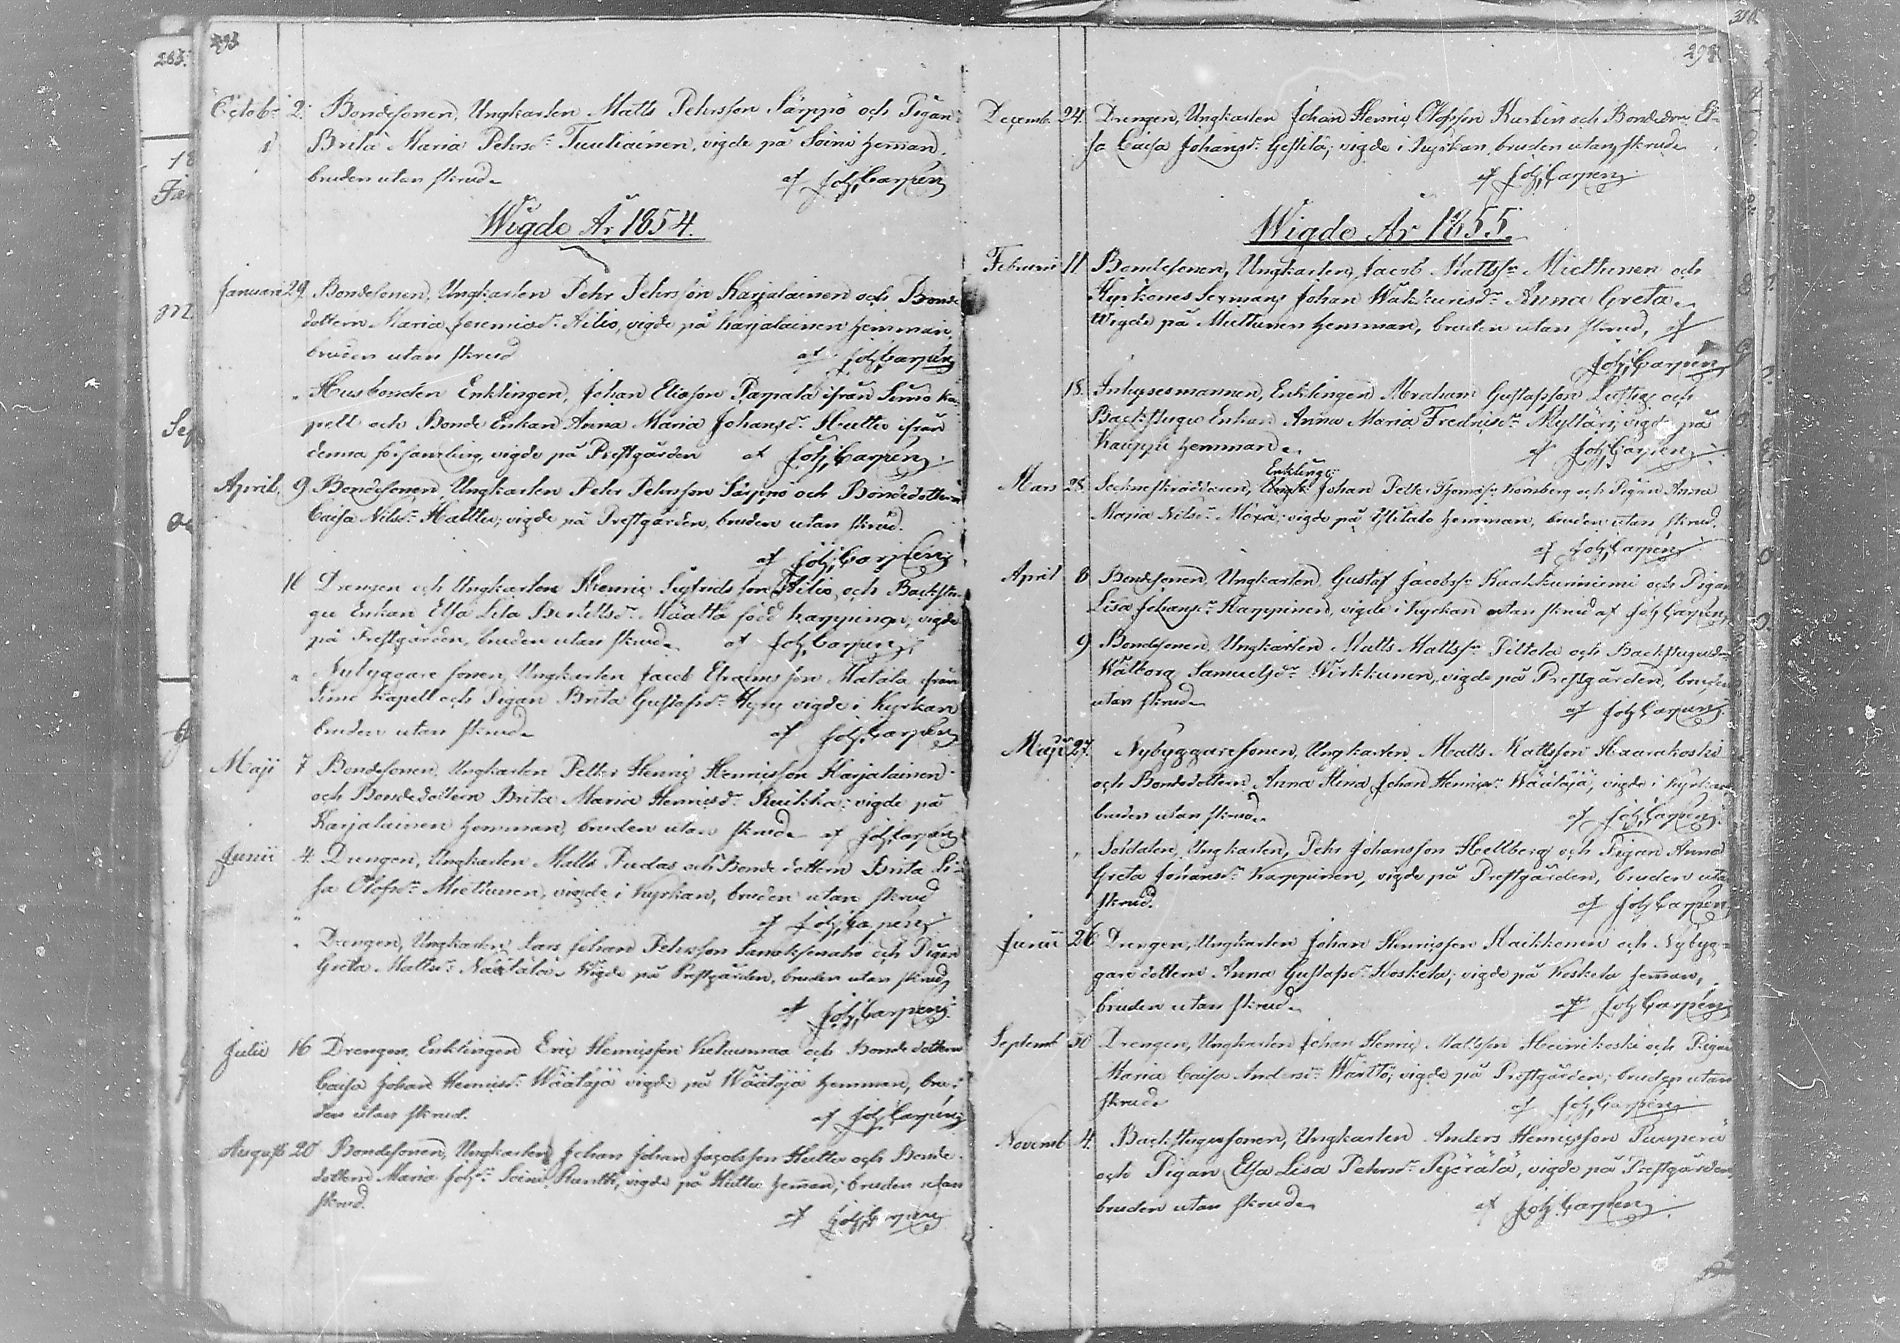 293
Octobr 2. Bondesonen, Ungkarlen Matts Pehrsson Särppö och Pigan
Brita Maria Pehrsdr Tuuliainen, vigde på Soini Hemman,
bruden utan skrud. af Joh. Carpén
Wigde År 1854.
Januari 29. Bondesonen, Ungkarlen Pehr Pehrsson Karjalainen och Bonde
dottern Maria Jeremiasdr Ailio, vigde på Karjalainen hemman,
bruden utan skrud af Joh. Carpén
" Husbonden Enklingen, Johan Eliasson Parpala ifrån Simo Ka-
pell och Bonde Enkan Anna Maria Johansdr Huttu ifrån
denna församling, vigde på Prestgården af Joh. Carpén
April 9 Bondesonen, Ungkarlen Pehr Pehrsson Särppö och Bondedottern
Caisa Nilsdr Hattu, vigde på Prestgården, bruden utan skrud.
af Joh. Carpén
16 Drengen och Ungkarlen Henric Sigfridsson Ailio, och Backstu-
gu Enkan Elsa Lisa Määttä född Karppinen, vigde
på Prestgården, bruden utan skrud. af Joh. Carpén
" Nybyggare sonen, Ungkarlen Jacob Efraimsson Matala ifrån
Simo Kapell och Pigan Brita Gustafsdr Hyry vigde i Kyrkan
bruden utan skrud. af Joh. Carpén
Maji 7 Bondesonen, Ungkarlen Petter Henric Henricsson Karjalainen
och Bondedottern Brita Maria Henricsdr Ruikka; vigde på
Karjalainen hemman, bruden utan skrud af Joh. Carpén
Junii 4. Drengen, Ungkarlen Matts Pudas och Bonde dottern Brita Li-
sa Olofsdr Miettunen, vigde i Kyrkan, bruden utan skrud
af Joh. Carpén
" Drengen, Ungkarlen Lars Johan Pehrsson och Pigan
Greta Mattsdr Näätälä. Wigde på Prestgården, bruden utan skrud,
af Joh. Carpén
Julii 16 Drengen, Enklingen Eric Henricsson Kehusmaa och Bonde dottern
Caisa Johan Henricsdr Wäätäjä vigde på Wäätäjä hemman, bru-
den utan skrud. af Joh. Carpén
August 20 Bondesonen, Ungkarlen Johan Johan Jacobsson Huttu och Bonde
dottern Maria Johsdr Soini, vigde på Huttu Hemman; bruden utan
skrud. af Joh. Carpén
Decemb. 24. Drengen, Ungkarlen Johan Henric Olofsson Kurkin och Bondedotr. El-
sa Caisa Johansdr; vigde i Kyrkan, bruden utan skrud
af Joh. Carpén
Wigde År 1855.
Februarii 11 Bondesonen, Ungkarlen, Jacob Mattssn Miettunen och
Kyrkones Sexmans Johan Wakkurisdr Anna Greta.
Wigde på Miettunen hemman, bruden utan skrud, af
Joh. Carpén
18. Inhysesmannen, Enklingen Abraham Gustafsson och
Backstugu Enkan Anna Maria Fredricsdr Mylläri, vigde på
Kauppi hemman. af Joh. Carpén
Enklinge
Mars 28 Sockneskräddaren, Johan Petter Thomassn och Pigan Anna
Maria Nilsdr; vigde på Ylitalo hemman, bruden utan skrud.
af Joh. Carpén
April 8 Bondesonen, Ungkarlen, Gustaf Jacobssn Kaakkuriniemi och Pigan
Lisa Johansdr Karppinen, vigde i Kyrkan utan skrud af Joh. Carpén
9 Bondesonen, Ungkarlen Matts Mattssn Pittola och Backstugudr
Wålborg Samuelsdr Wirkkunen, vigde på Prestgården, bruden
utan skrud. af Joh. Carpén
Maji 27. Nybyggaresonen, Ungkarlen, Matts Mattsson Haarakoski
och Bondedottern Anna Stina Johan Henricsdr Wäätäjä, vigde i Kyrkan
bruden utan skrud. af Joh. Carpén
" Soldaten, Ungkarlen, Pehr Johansson Hellberg och Pigan Anna
Greta Johansdr Karppinen, vigde på Prestgården, bruden utan
skrud. af Joh. Carpén
Junii 26 Drengen, Ungkarlen Johan Henricsson Kaikkonen och Nybyg-
gare dottern Anna Gustafsdr Koskela; vigde på Koskela Hemman,
bruden utan skrud. af Joh. Carpén
Septemb. 30 Drengen, Ungkarlen Johan Henric Mattsson Heinikoski och Pigan
Maria Caisa Andersdr Wärttö; vigde på Prestgården; bruden utan
skrud. af Joh. Carpén
Novemb. 4. Backstugusonen, Ungkarlen Anders Henricsson Puuperä
och Pigan Elsa Lisa Pehrsdr Pyörälä, vigde på Prestgården,
bruden utan skrud. af Joh. Carpén